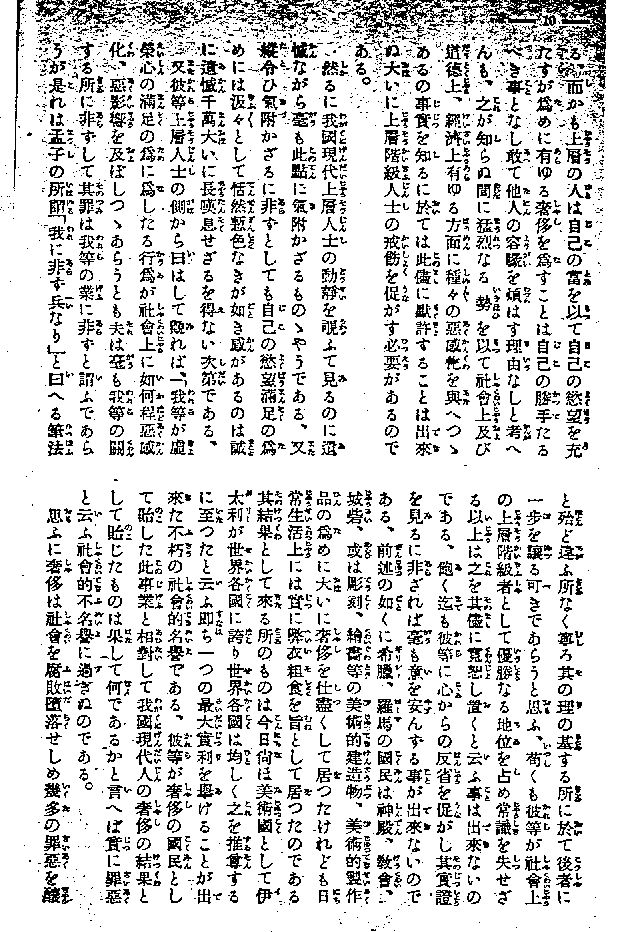 10
る、而かも上層の人は自己の富を以て自己の慾望を充
たすが爲めに有ゆる奢侈を爲すことは自己の勝手たる
べき事となし敢て他人の容喙を煩はす理由なしと考へ
んも、之が知らぬ間に猛烈なる 勢を以て社會上及び
道德上、經濟上有ゆる方面に種々の惡感化を與へつゝ
あるの事實を知るに於ては此儘に默許することは出來
ぬ大いに上層階級人士の戒飭を促がす必要があるので
ある。
然るに我國現代上層人士の動靜を覗ふて見るのに遺
憾ながら毫も此點に氣附かざるものゝやうである、又
縱令ひ氣附かざるに非ずとしても自己の慾望滿足の爲
めには汲々として恬然慙色なきが如き感があるのは誠
に遺憾千萬大いに長嘆息せざるを得ない次第である、
又彼等上層人士の側から曰はして見れば、「我等が虛
榮心の滿足の爲に爲したる行爲が社會上に如何程惡感
化、惡影響を及ぼしつゝあらうとも夫は毫も我等の關
する所に非ずして其罪は我等の業に非ずと謂ふであら
うが是れは孟子の所謂「我に非ず兵なり」と曰へる筆法
と殆ど違ふ所なく寧ろ其の理の基する所に於て後者に
一步を讓る可きであらうと思ふ、苟くも彼等が社會上
の上層階級者として優勝なる地位を占め常識を失せざ
る以上は之を其儘に寬恕し置くと云ふ事は出來ないの
である、飽く迄も彼等に心からの反省を促がし其實證
を見るに非ざれば毫も意を安んずる事が出來ないので
ある、前述の如くに希臘、羅馬の國民は神殿、敎會、
城砦、或は彫刻、繪畵等の美術的建造物、美術的製作
品の爲めに大いに奢侈を仕盡くして居つたけれども日
常生活上には實に弊衣粗食を旨として居つたのである
其結果として來る所のものは今日尙ほ美術國として伊
太利が世界各國に誇り世界各國は均しく之を推尊する
に至つたと云ふ卽ち一つの最大實利を擧げることが出
來た不朽の社會的名譽である、彼等が奢侈の國民とし
て貽した此事業と相對して我國現代人の奢侈の結果と
して貽じたものは果して何であるかと言へば實に罪惡
と云ふ社會的不名譽に過ぎぬのである。
思ふに奢侈は社會を腐敗墮落せしめ幾多の罪惡を釀